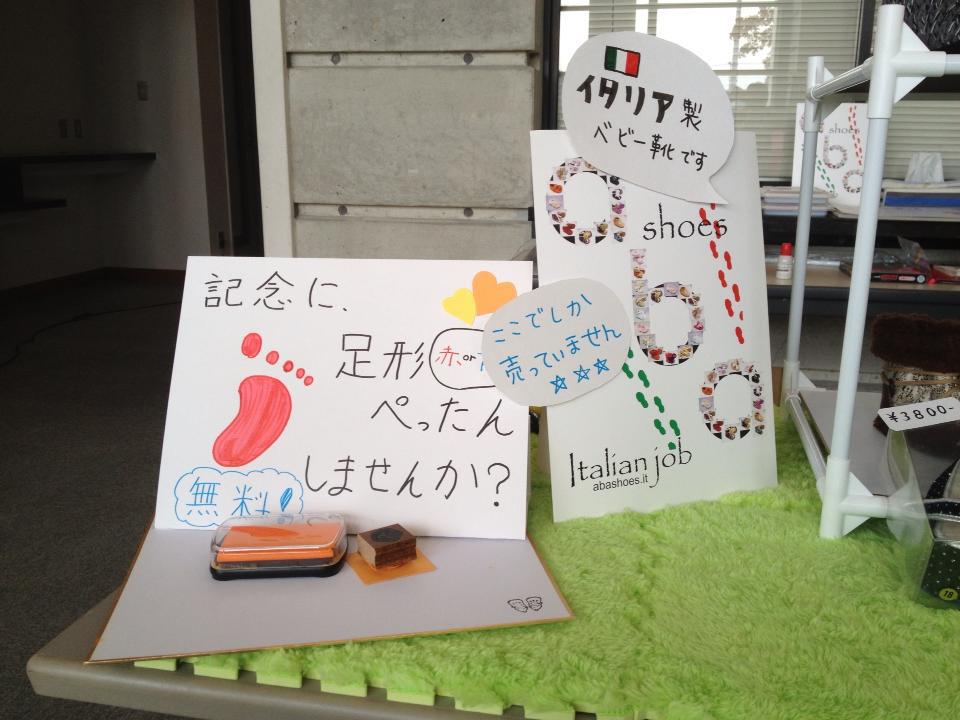 記念に、
足形 赤、or
ぺったん
しませんか?
無料!
ここでしか
売っていません
☆☆☆
イタリア製
ベビー靴です
a shoes
b
a
Italian job
abashoes.it
shoes
b
a
¥3800-
18